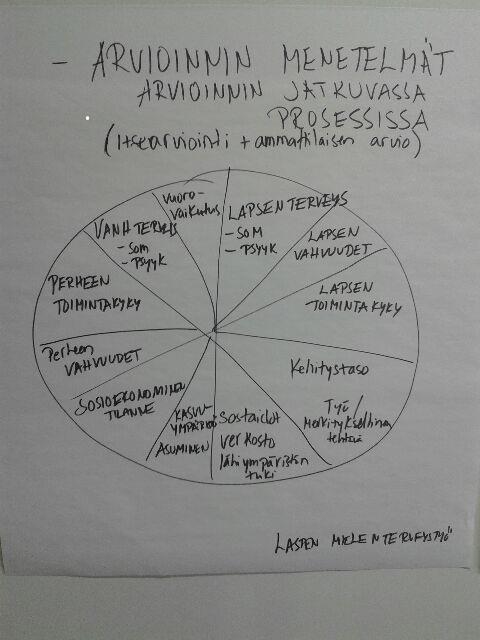 - ARVIOINNIN MENETELMÄT
ARVIOINNIN JATKUVASSA
PROSESSISSA
(itsearviointi + ammattilaisen arvio)
LAPSEN TERVEYS
- SOM
- PSYYK
LAPSEN
VAHVUUDET
LAPSEN
TOIMINTAKYKY
Kehitystaso
Työ/
Merkityksellinen
tehtävä
Sos taidot
verkosto
lähiympäristön
tuki
KASVU-
YMPÄRISTÖ
ASUMINEN
SOSIOEKONOMINEN
TILANNE
Perheen
VAHVUUDET
PERHEEN
TOIMINTAKYKY
VANH TERVEYS
- SOM
- PSYYK
Vuoro-
vaikutus
LASTEN MIELENTERVEYSTYÖ